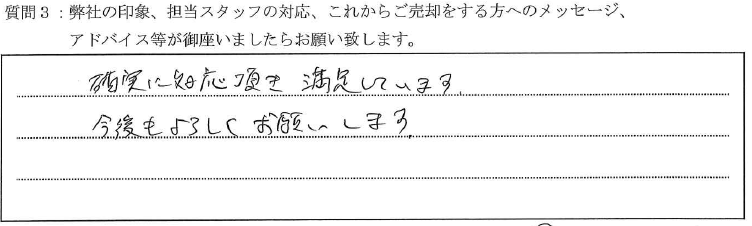 質問3：弊社の印象、担当スタッフの対応、これからご売却をする方へのメッセージ、
アドバイス等が御座いましたらお願い致します。
確実に対応頂き 満足しています。
今後もよろしくお願いします。